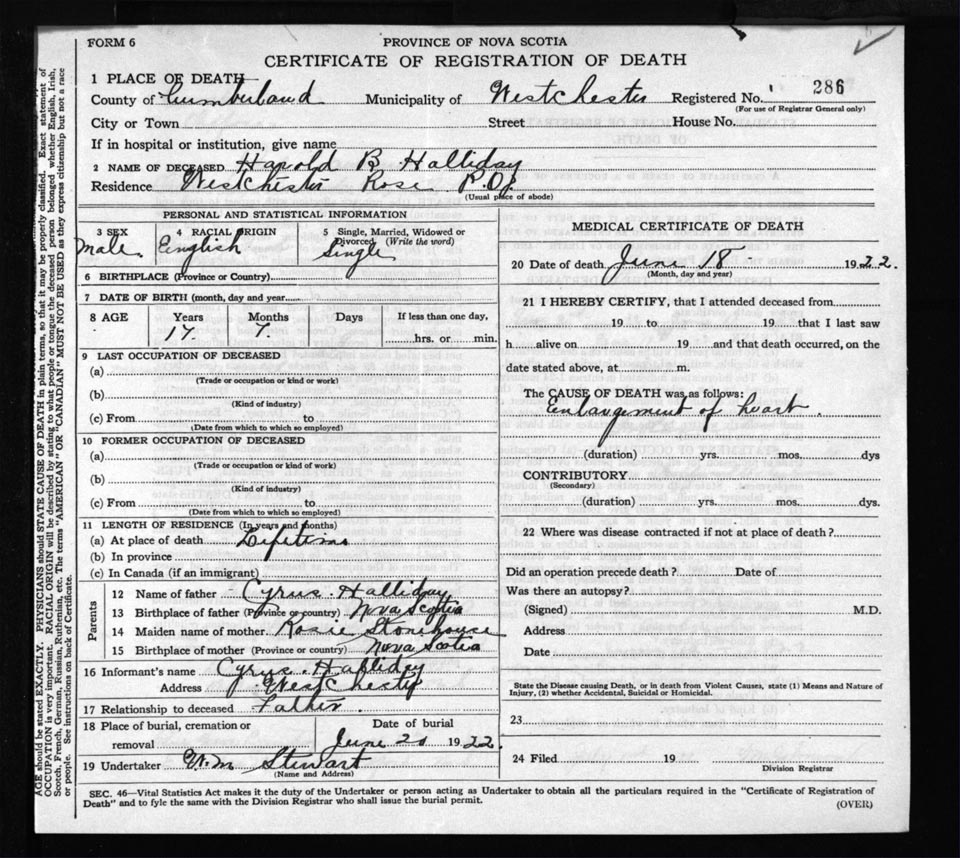 FORM 6
PROVINCE OF NOVA SCOTIA
CERTIFICATE OF REGISTRATION OF DEATH
1 PLACE OF DEATH
County of Cumberland Municipality of Westchester Registered No. 286
(For use of Registrar General only)
City or Town Street House No.
If in hospital or institution, give name
2 NAME OF DECEASED Harold B Halliday
Residence Westchester Rose P.O.
(Usual place of abode)
PERSONAL AND STATISTICAL INFORMATION
3 SEX 4 RACIAL ORIGIN 5 Single, Married, Widowed or
Divorced, (Write the word)
Male English Single
6 BIRTHPLACE (Province or Country)
7 DATE OF BIRTH (month, day and year)
8 AGE Years Months Days If less than one day,
17 7 hrs. or min.
9 LAST OCCUPATION OF DECEASED
(a)
(Trade or occupation or kind or work)
(b)
(Kind of industry)
(c) From to
(Date from which to which so employed)
10 FORMER OCCUPATION OF DECEASED
(a)
(Trade or occupation or kind of work)
(b)
(Kind of industry)
(c) From to
(Date from which to which so employed)
11 LENGTH OF RESIDENCE (In years and months)
(a) At place of death Lifetime
(b) In province
(c) In Canada (if an immigrant)
Parents
12 Name of father Cyrus Halliday
13 Birthplace of father (Province or country) Nova Scotia
14 Maiden name of mother Rosie Stonehouse
15 Birthplace of mother (Province or country) Nova Scotia
16 Informant's name Cyrus Halliday
Address Westchester
17 Relationship to deceased Father
18 Place of burial, cremation or Date of burial
removal June 20 1922
19 Undertaker Wm Stewart
(Name and Address)
MEDICAL CERTIFICATE OF DEATH
20 Date of death June 18 1922.
(Month, day and year)
21 I HEREBY CERTIFY, that I attended deceased from
19 to 19 that I last saw
h alive on 19 and that death occurred, on the
date stated above, at m.
The CAUSE OF DEATH was as follows:
Enlargement of heart.
(duration) yrs. mos. dys
CONTRIBUTORY
(Secondary)
(duration) yrs mos. dys.
22 Where was disease contracted if not at place of death?
Did an operation precede death? Date of
Was there an autopsy?
(Signed) M.D.
Address
Date
State the Disease causing Death, or in death from Violent Causes, state (1) Means and Nature of
Injury, (2) whether Accidental, Suicidal or Homicidal.
23
24 Filed 19
Division Registrar
SEC. 46—Vital Statistics Act makes it the duty of the Undertaker or person acting as Undertaker to obtain all the particulars required in the "Certificate of Registration of
Death" and to fyle the same with the Division Registrar who shall issue the burial permit.
(OVER)
AGE should be stated EXACTLY. PHYSICIANS should STATE CAUSE OF DEATH in plain terms, so that it may be properly classified. Exact statement of
OCCUPATION is very important. RACIAL ORIGIN will be described by stating to what people or tongue the deceased person belonged whether English, Irish,
Scotch, French, German, Russian, Ruthenian, etc. The terms "AMERICAN" OR "CANADIAN" MUST NOT BE USED as they express citizenship but not a race
or people. See instructions on back of Certificate.